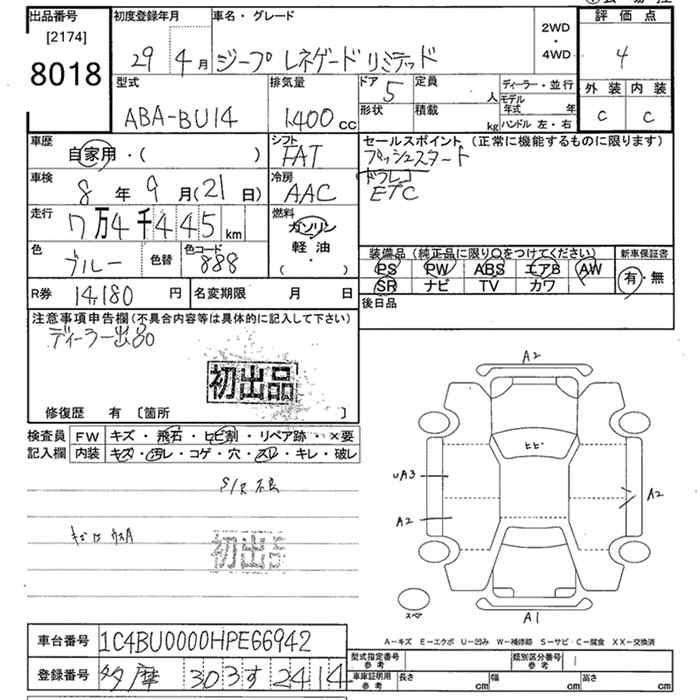 出品番号
[2174]
8018
初度登録年月
29 4月
車名・グレード
ジープ レネゲード リミテッド
2WD
・
4WD
評価点
4
外装 内装
C C
型式
ABA-BU14
排気量
1400cc
ドア 5
定員
人
形状
積載
kg
ディーラー・並行
モデル年式 年
ハンドル 左・右
車歴
自家用・( )
シフト
FAT
セールスポイント(正常に機能するものに限ります)
プッシュスタート
ドラレコ
ETC
車検
8年9月(21日)
冷房
AAC
走行
7万4千445km
燃料
ガソリン
軽油
( ・ )
色
ブルー
色替
色コード
888
装備品(純正品に限り○をつけてください)
PS PW ABS エアB AW
SR ナビ TV カワ
新車保証書
有・無
R券 14180円
名変期限 月 日
後日品
注意事項申告欄(不具合内容等は具体的に記入して下さい)
ディーラー出品
初出品
修復歴 有 〔箇所 〕
検査員
記入欄
FW キズ・飛石・ヒビ割・リペア跡・×要
内装 キズ・汚レ・コゲ・穴・スレ・キレ・破レ
S/R不良
初出品
A2
ヒビ
UA3
A2
A2
スペア
A1
A-キズ E-エクボ U-凹み W-補修跡 S-サビ C-腐食 XX-交換済
車台番号 1C4BU0000HPE66942
登録番号 多摩 303す2414
型式指定番号
参考
類別区分番号
参考
車庫証明用
参考
長さ cm 幅 cm 高さ cm